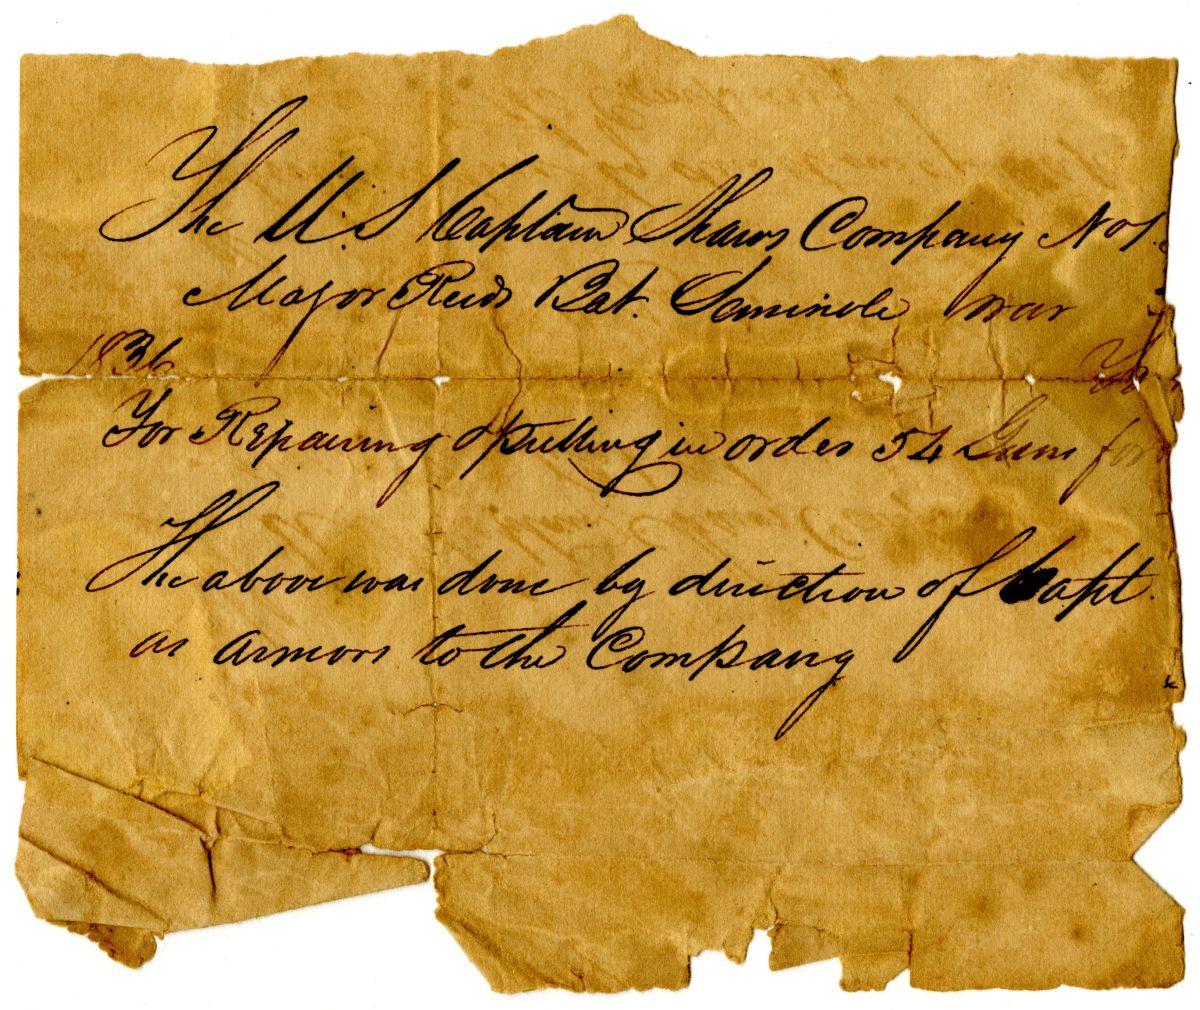 The U.S Captain Shaws Company No 1.
Major Reids Bat. Seminole war
1836
For Repairing & putting in order 54 Guns for
The above was done by direction of Capt.
as armors to the Company